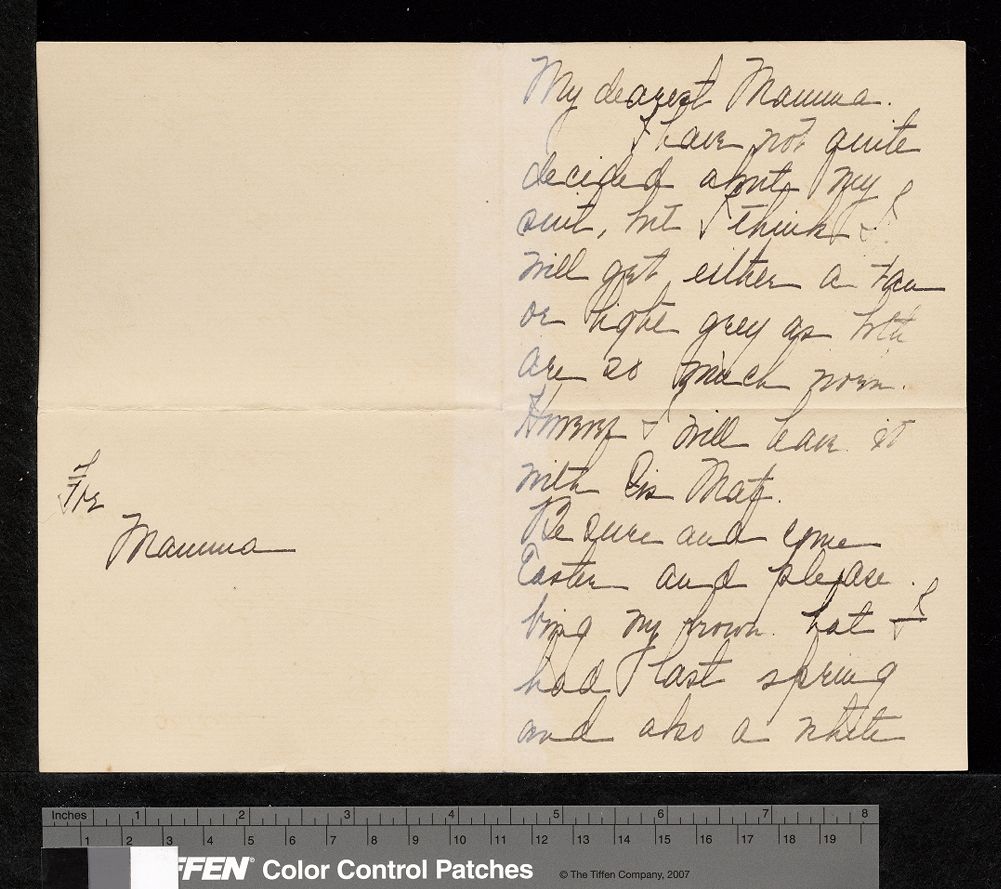 For
Mamma
My dearest Mamma.
I have not quite
decided about my
suit, but I think I
will get either a tan
or light grey as both
are so much worn.
However I will leave it
with Sis Mat.
Be sure and come
Easter and please
bring my brown hat I
had last spring
and also a white
Inches 1 2 3 4 5 6 7 8
1 2 3 4 5 6 7 8 9 10 11 12 13 14 15 16 17 18 19
FFEN® Color Control Patches © The Tiffen Company, 2007